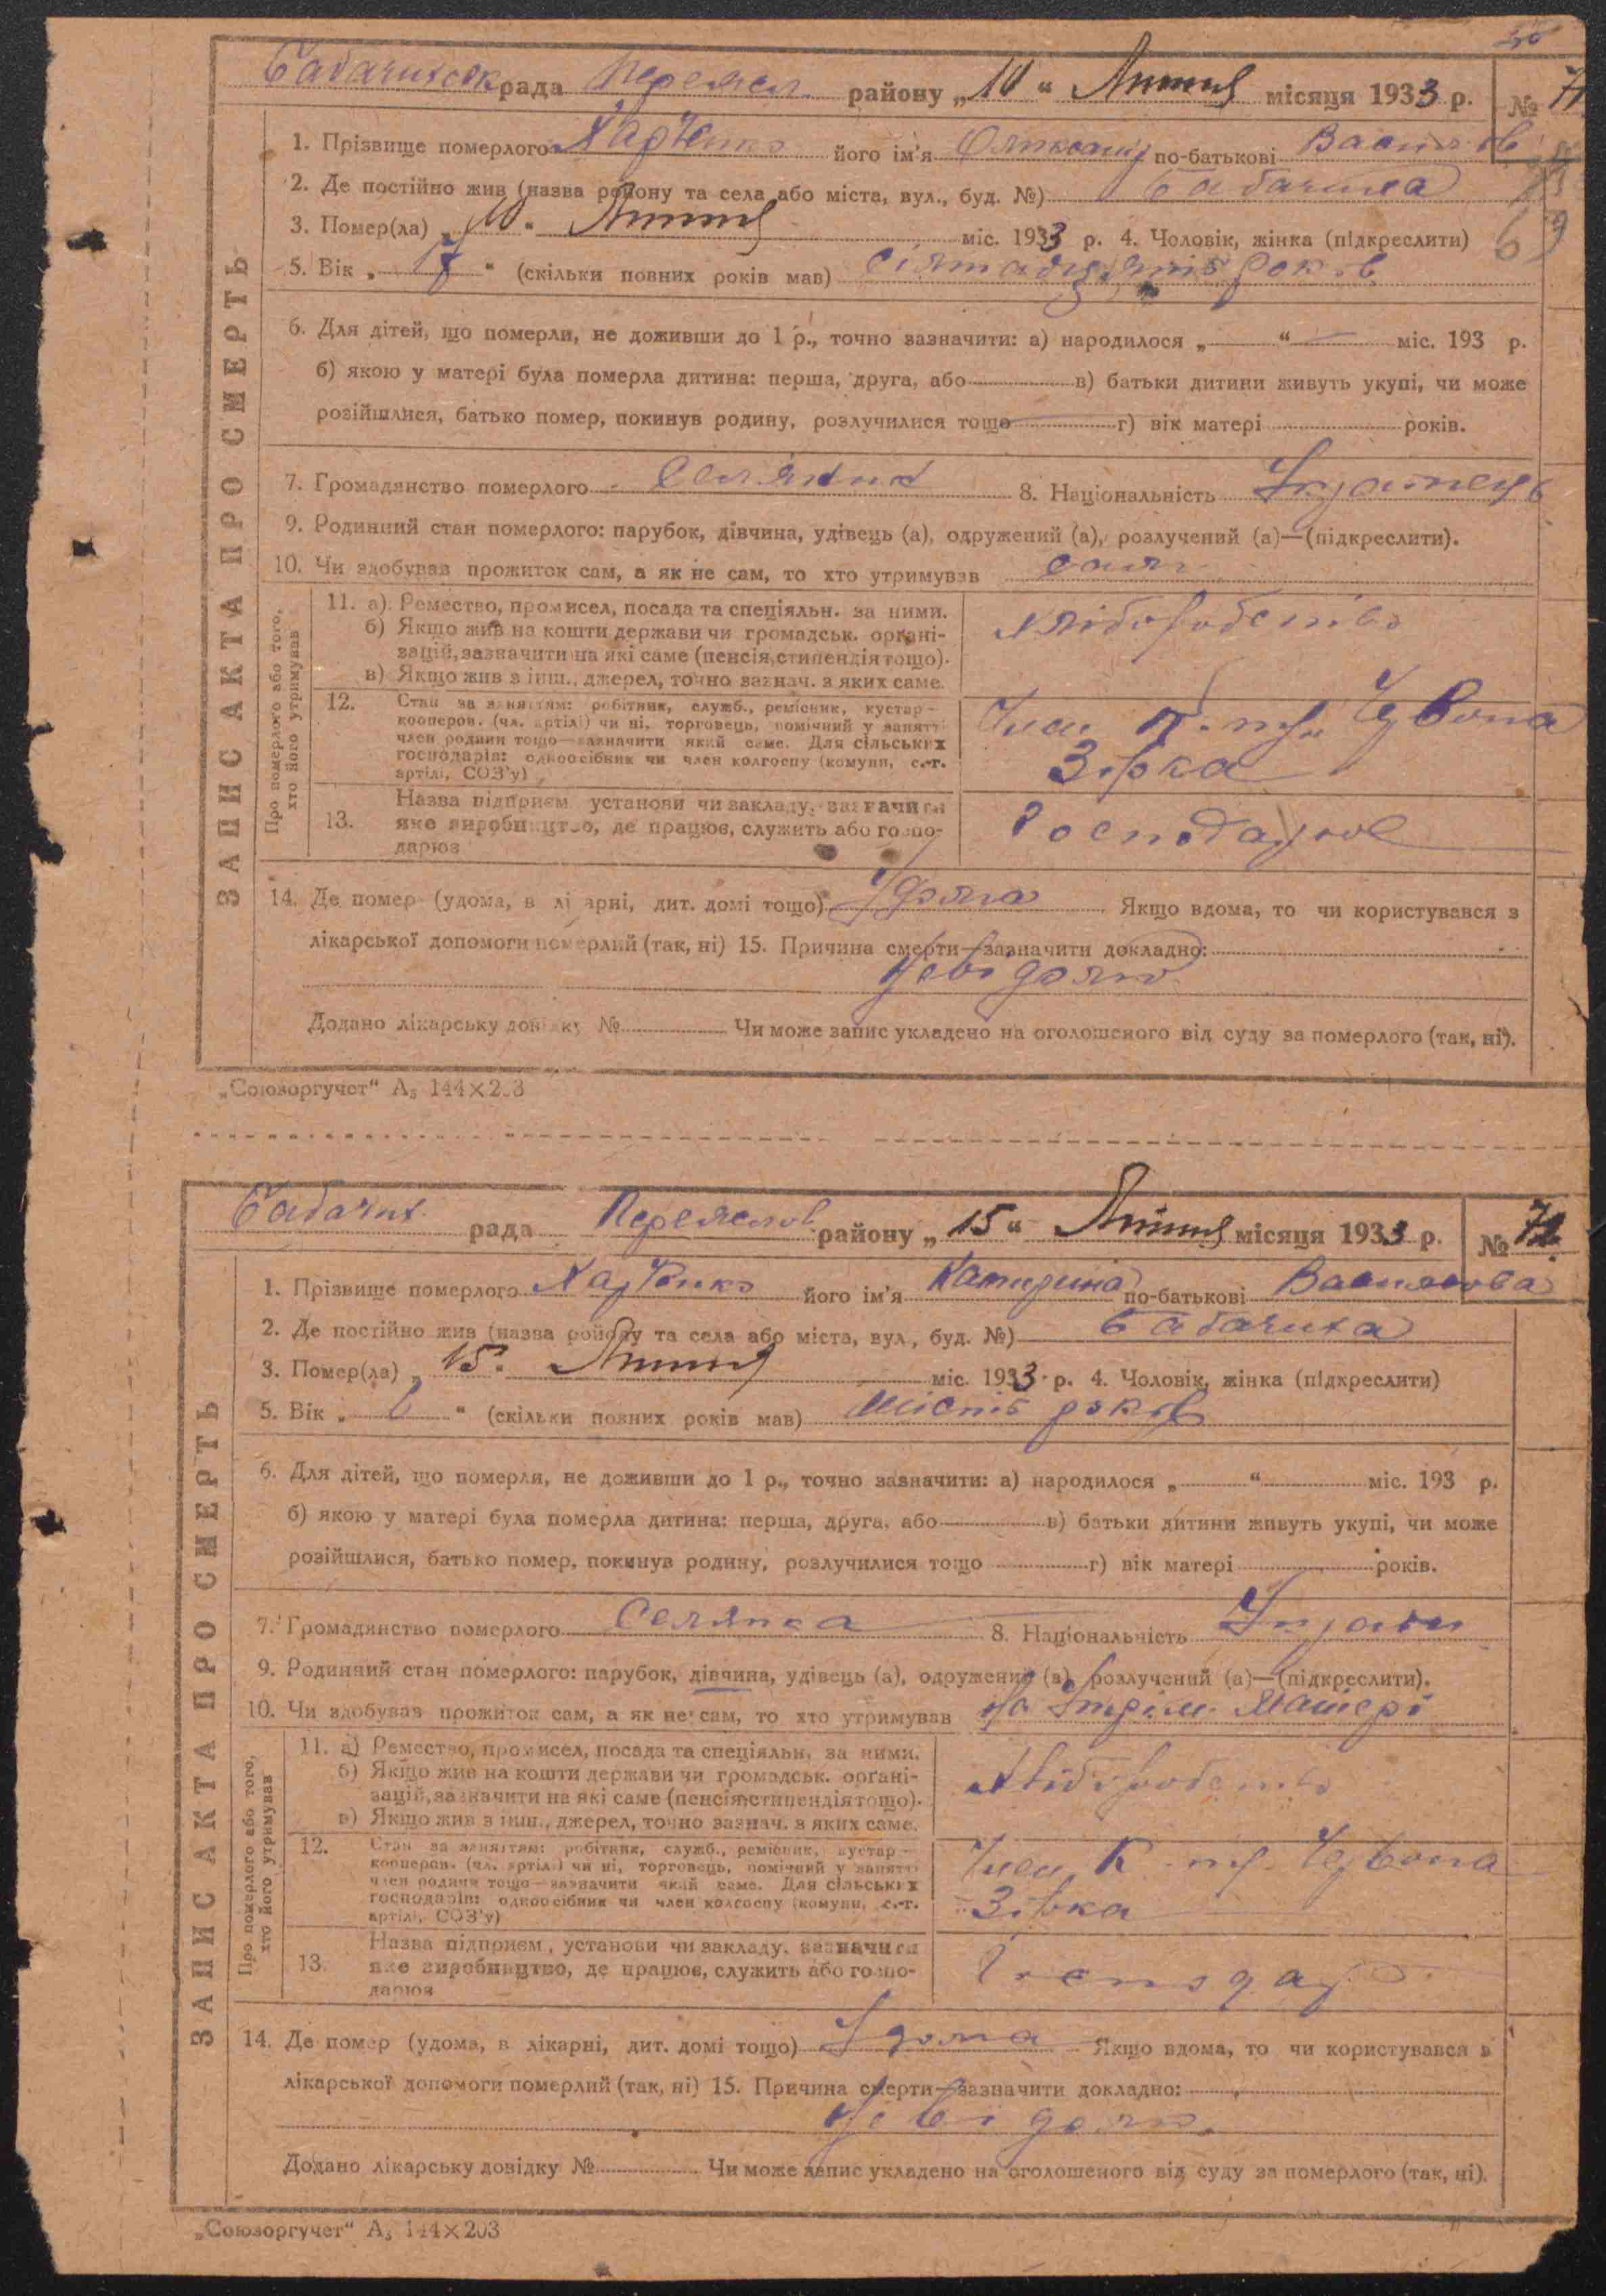 Бабачихськ рада Переясл. району „10“ Липня місяця 1933 р. № 71
1. Прізвище померлого Харченко його ім'я по-батькові Васильов
2. Де постійно жив (назва району та села або міста, вул., буд. №) Бабачиха
3. Помер(ла) „10“ Липня міс. 1933 р. 4. Чоловік, жінка (підкреслити)
5. Вік „17“ (скільки повних років мав) років
6. Для дітей, що померли, не доживши до 1 р., точно зазначити: а) народилося „ “ міс. 193 р.
б) якою у матері була померла дитина: перша, друга, або в) батьки дитини живуть укупі, чи може
розійшлися, батько помер, покинув родину, розлучилися тощо г) вік матері років.
7. Громадянство померлого Селянин 8. Національність Українець
9. Родинний стан померлого: парубок, дівчина, удівець (а), одружений (а), розлучений (а)—(підкреслити).
10. Чи здобував прожиток сам, а як не сам, то хто утримував сам
ЗАПИС АКТА ПРО СМЕРТЬ
Про померлого або того, хто його утримував
11. а) Ремество, промисел, посада та спеціяльн. за ними.
б) Якщо жив на кошти держави чи громадськ. органі-
зацій, зазначити на які саме (пенсія, стипендія тощо).
в) Якщо жив з інш., джерел, точно зазнач. з яких саме.
хліборобство
12. Стан за заняттям: робітник, служб., ремісник, кустар—
кооперов. (чл. артілі) чи ні, торговець, помічний у занятті
член родини тощо—зазначити який саме. Для сільських
господарів: одноосібник чи член колгоспу (комуни, с.-г.
артілі, СОЗ'у)
Член к-ту Червона
Зірка
13. Назва підприєм. установи чи закладу, зазначити
яке виробництво, де працює, служить або госпо-
дарює
Господарює
14. Де помер (удома, в лікарні, дит. домі тощо) Удома Якщо вдома, то чи користувався з
лікарської допомоги померлий (так, ні) 15. Причина смерти—зазначити докладно:
Невідомо
Додано лікарську довідку № Чи може запис укладено на оголошеного від суду за померлого (так, ні).
„Союзоргучет“ А₅ 144×203
Бабачих. рада Переяслов району „15“ Липня місяця 1933 р. № 72
1. Прізвище померлого Харченко його ім'я Катирина по-батькові Васильова
2. Де постійно жив (назва району та села або міста, вул., буд. №) Бабачиха
3. Помер(ла) „15“ Липня міс. 1933 р. 4. Чоловік, жінка (підкреслити)
5. Вік „6“ (скільки повних років мав) шість років
6. Для дітей, що померли, не доживши до 1 р., точно зазначити: а) народилося „ “ міс. 193 р.
б) якою у матері була померла дитина: перша, друга, або в) батьки дитини живуть укупі, чи може
розійшлися, батько помер, покинув родину, розлучилися тощо г) вік матері років.
7. Громадянство померлого Селянка 8. Національність Україн
9. Родинний стан померлого: парубок, дівчина, удівець (а), одружений (а), розлучений (а)—(підкреслити).
10. Чи здобував прожиток сам, а як не сам, то хто утримував на утрим. матері
ЗАПИС АКТА ПРО СМЕРТЬ
Про померлого або того, хто його утримував
11. а) Ремество, промисел, посада та спеціяльн. за ними.
б) Якщо жив на кошти держави чи громадськ. органі-
зацій, зазначити на які саме (пенсія, стипендія тощо).
в) Якщо жив з інш., джерел, точно зазнач. з яких саме.
хліборобство
12. Стан за заняттям: робітник, служб., ремісник, кустар—
кооперов. (чл. артілі) чи ні, торговець, помічний у занятті
член родини тощо—зазначити який саме. Для сільських
господарів: одноосібник чи член колгоспу (комуни, с.-г.
артілі, СОЗ'у)
Член к-ту Червона
Зірка
13. Назва підприєм., установи чи закладу, зазначити
яке виробництво, де працює, служить або госпо-
дарює
Господар
14. Де помер (удома, в лікарні, дит. домі тощо) Удома Якщо вдома, то чи користувався з
лікарської допомоги померлий (так, ні) 15. Причина смерти—зазначити докладно:
Невідомо
Додано лікарську довідку № Чи може запис укладено на оголошеного від суду за померлого (так, ні).
„Союзоргучет“ А₅ 144×203